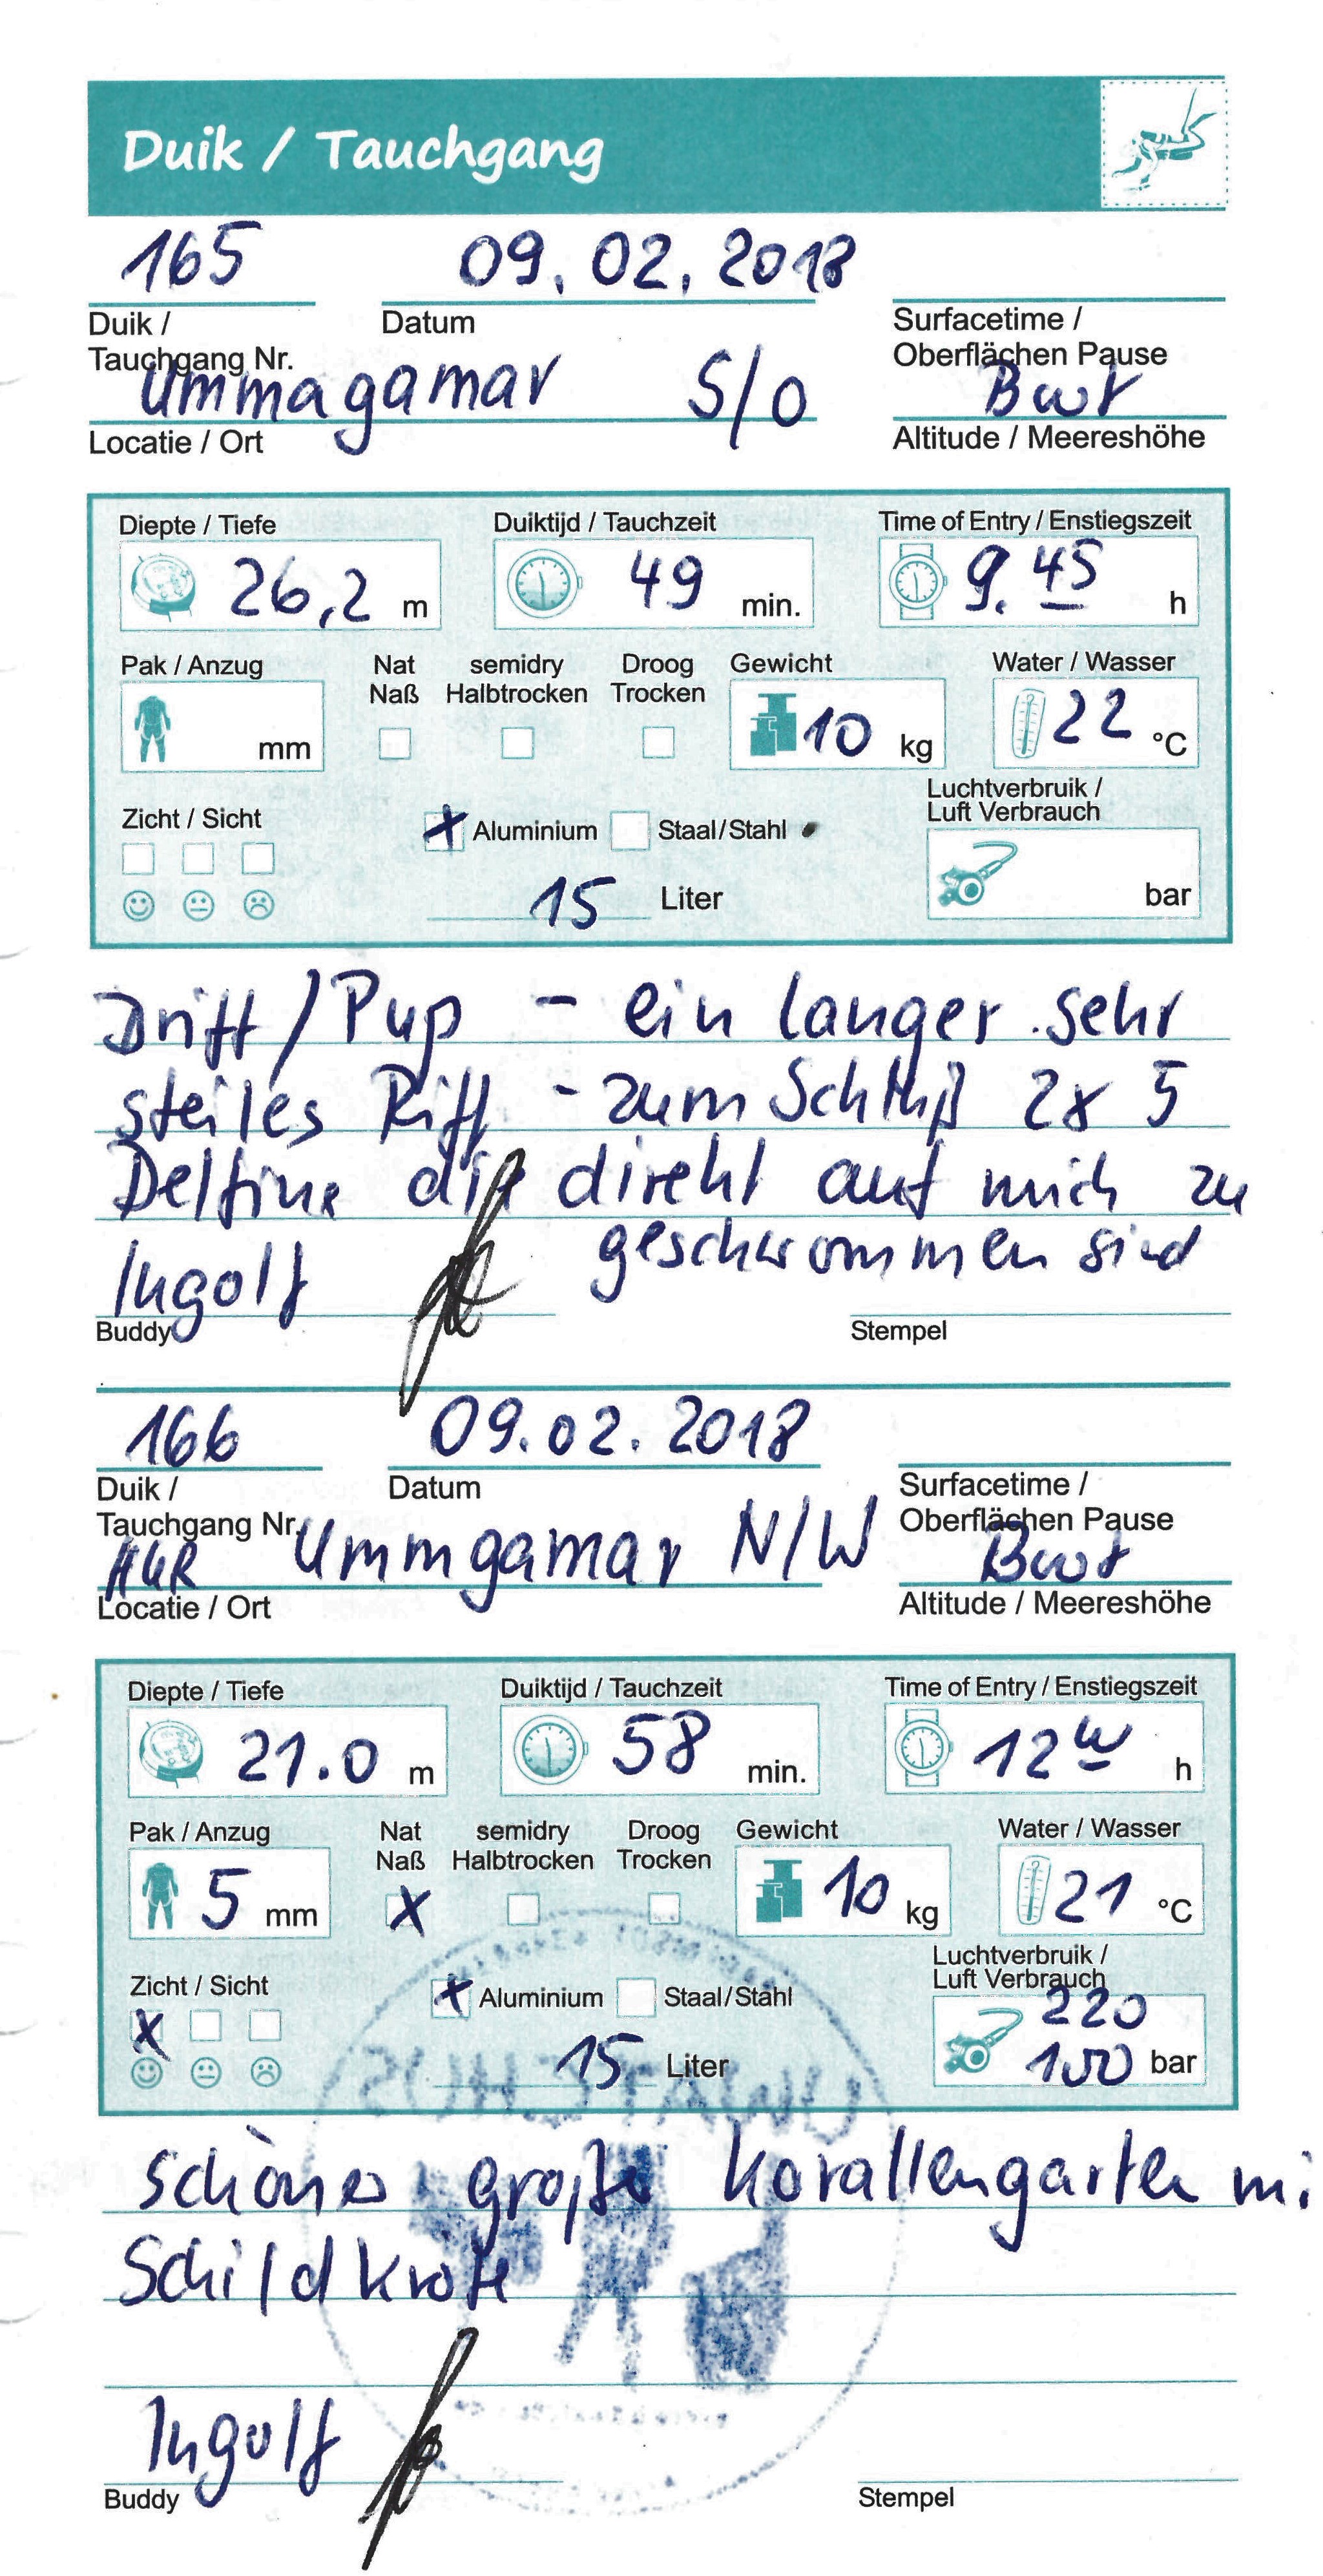 Duik / Tauchgang
165 09.02.2018
Duik / Datum Surfacetime /
Tauchgang Nr. Oberflächen Pause
Ummagamar S/O Boot
Locatie / Ort Altitude / Meereshöhe
Diepte / Tiefe Duiktijd / Tauchzeit Time of Entry / Enstiegszeit
26,2 m 49 min. 9.45 h
Pak / Anzug Nat semidry Droog Gewicht Water / Wasser
Naß Halbtrocken Trocken
mm 10 kg 22 °C
Luchtverbruik /
Zicht / Sicht Luft Verbrauch
X Aluminium Staal/Stahl
15 Liter bar
Drift/Pup - ein langer sehr
steiles Riff - zum Schluß 2x 5
Delfine die direkt auf mich zu
geschwommen sind
Ingolf
Buddy Stempel
166 09.02.2018
Duik / Datum Surfacetime /
Tauchgang Nr. Oberflächen Pause
HGR Ummgamar N/W Boot
Locatie / Ort Altitude / Meereshöhe
Diepte / Tiefe Duiktijd / Tauchzeit Time of Entry / Enstiegszeit
21.0 m 58 min. 12 h
Pak / Anzug Nat semidry Droog Gewicht Water / Wasser
Naß Halbtrocken Trocken
5 mm X 10 kg 21 °C
Luchtverbruik /
Zicht / Sicht Luft Verbrauch
X X Aluminium Staal/Stahl 220
15 Liter 100 bar
schöner großer Korallengarten mi
Schildkröte
Ingolf
Buddy Stempel